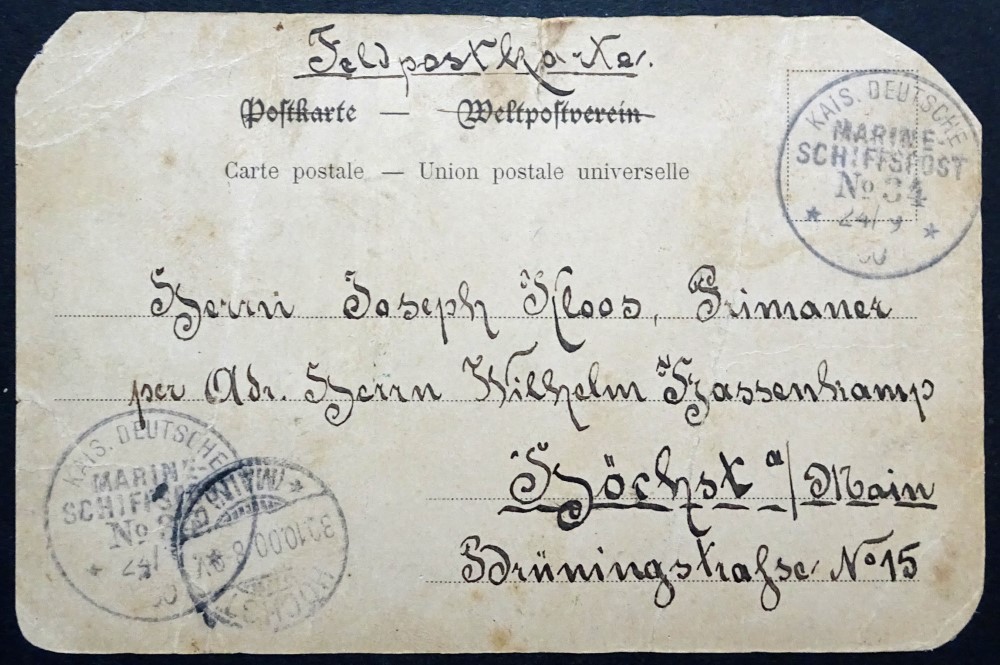 Feldpostkarte.
Postkarte — Weltpostverein
Carte postale — Union postale universelle
KAIS. DEUTSCHE
MARINE-
SCHIFFSPOST
No 34
24/9
00
Herrn Joseph Kloos, Primaner
per Adr. Herrn Wilhelm Hassenkamp
Höchst a/Main
Brüningstraße No 15
KAIS. DEUTSCHE
MARINE-
SCHIFFSPOST
No 3
24/
9
00
(MAIN)
30.10.00
HÖCHST